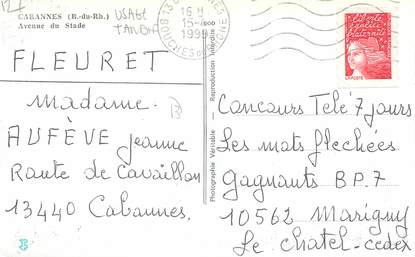 CABANNES (B.-du-Rh.)
Avenue du Stade
USAGE
TAMBRE
16 H
15-
1999
BOUCHES DU RHONE
liberté
égalité
fraternité
LA POSTE
FLEURET
Madame
AUFÈVE Jeanne
Route de Cavaillon
13440 Cabannes.
Photographie Véritable - Reproduction Interdite
Concours Télé 7 jours
Les mots flechées
Gagnants B.P.7
10562 Marigny
Le Chatel-cedex